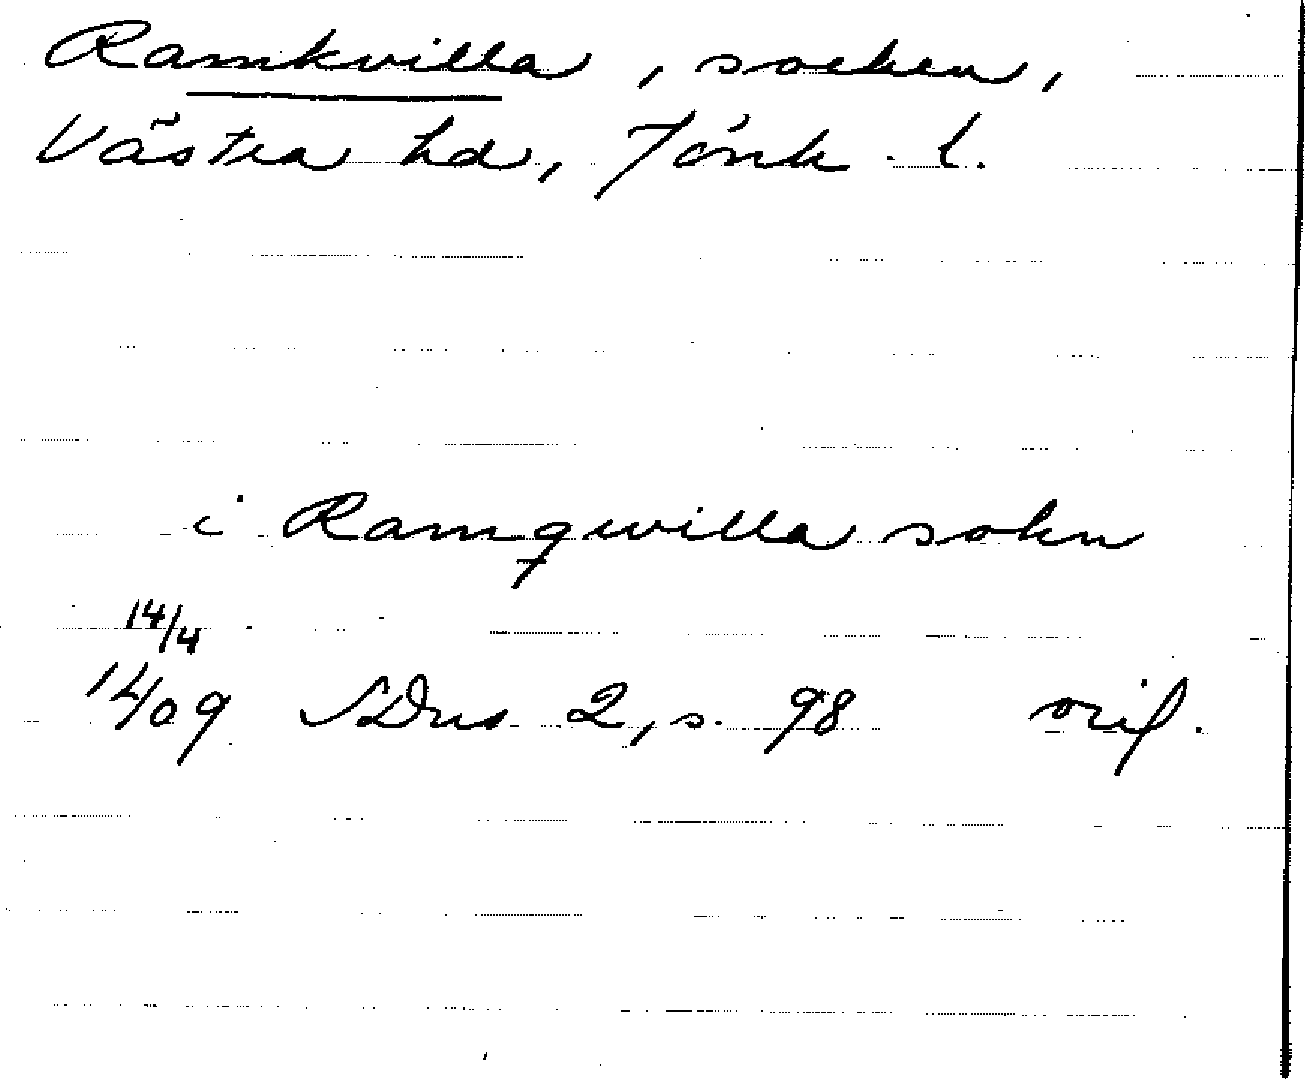 Ramkvilla, socken,
Västra hd, Jönk. l.
i Ramqwilla sokn
14/4
1409 SDns 2, s. 98 orig.